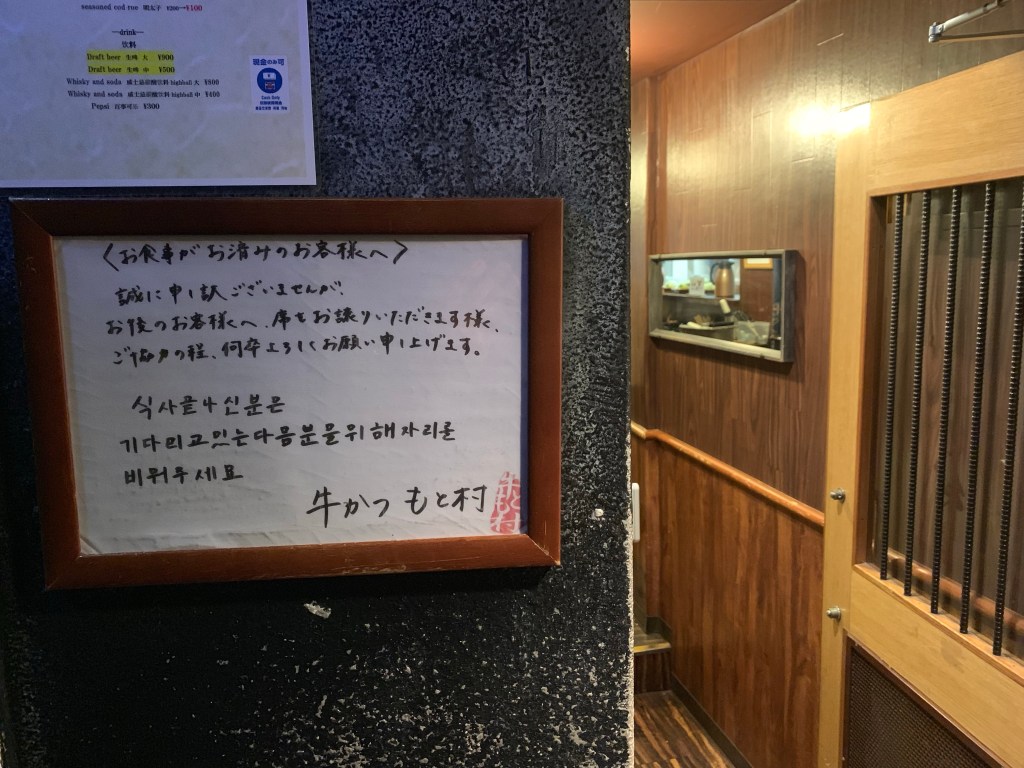 seasoned cod roe 明太子 ¥100
—drink—
饮料
Draft beer 生啤 大 ¥900
Draft beer 生啤 中 ¥500
Whisky and soda 威士忌碳酸饮料 highball 大 ¥800
Whisky and soda 威士忌碳酸饮料 highball 中 ¥400
Pepsi 百事可乐 ¥300
現金のみ可
Cash Only
〈お食事がお済みのお客様へ〉
誠に申し訳ございませんが、
お後のお客様へ、席をお譲りいただきます様、
ご協力の程、何卒よろしくお願い申し上げます。
식사끝나신분은
기다리고있는다음분을위해자리를
비워주세요
牛かつ もと村
牛もと村